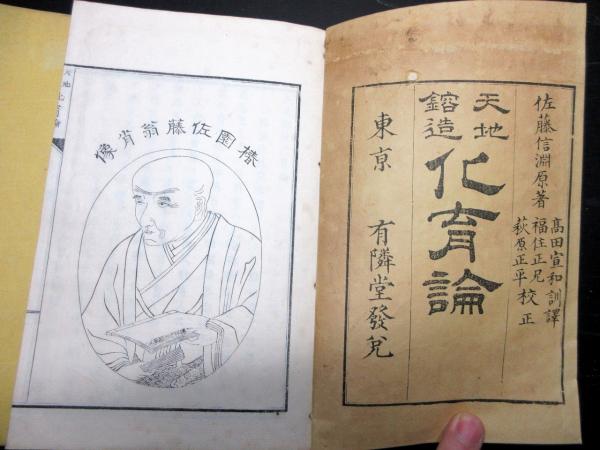 佐藤信淵原著
高田宣和訓譯
福住正兄
萩原正平校正
天地
鎔造
化育論
東亰 有隣堂發兌
椿園佐藤翁肖像